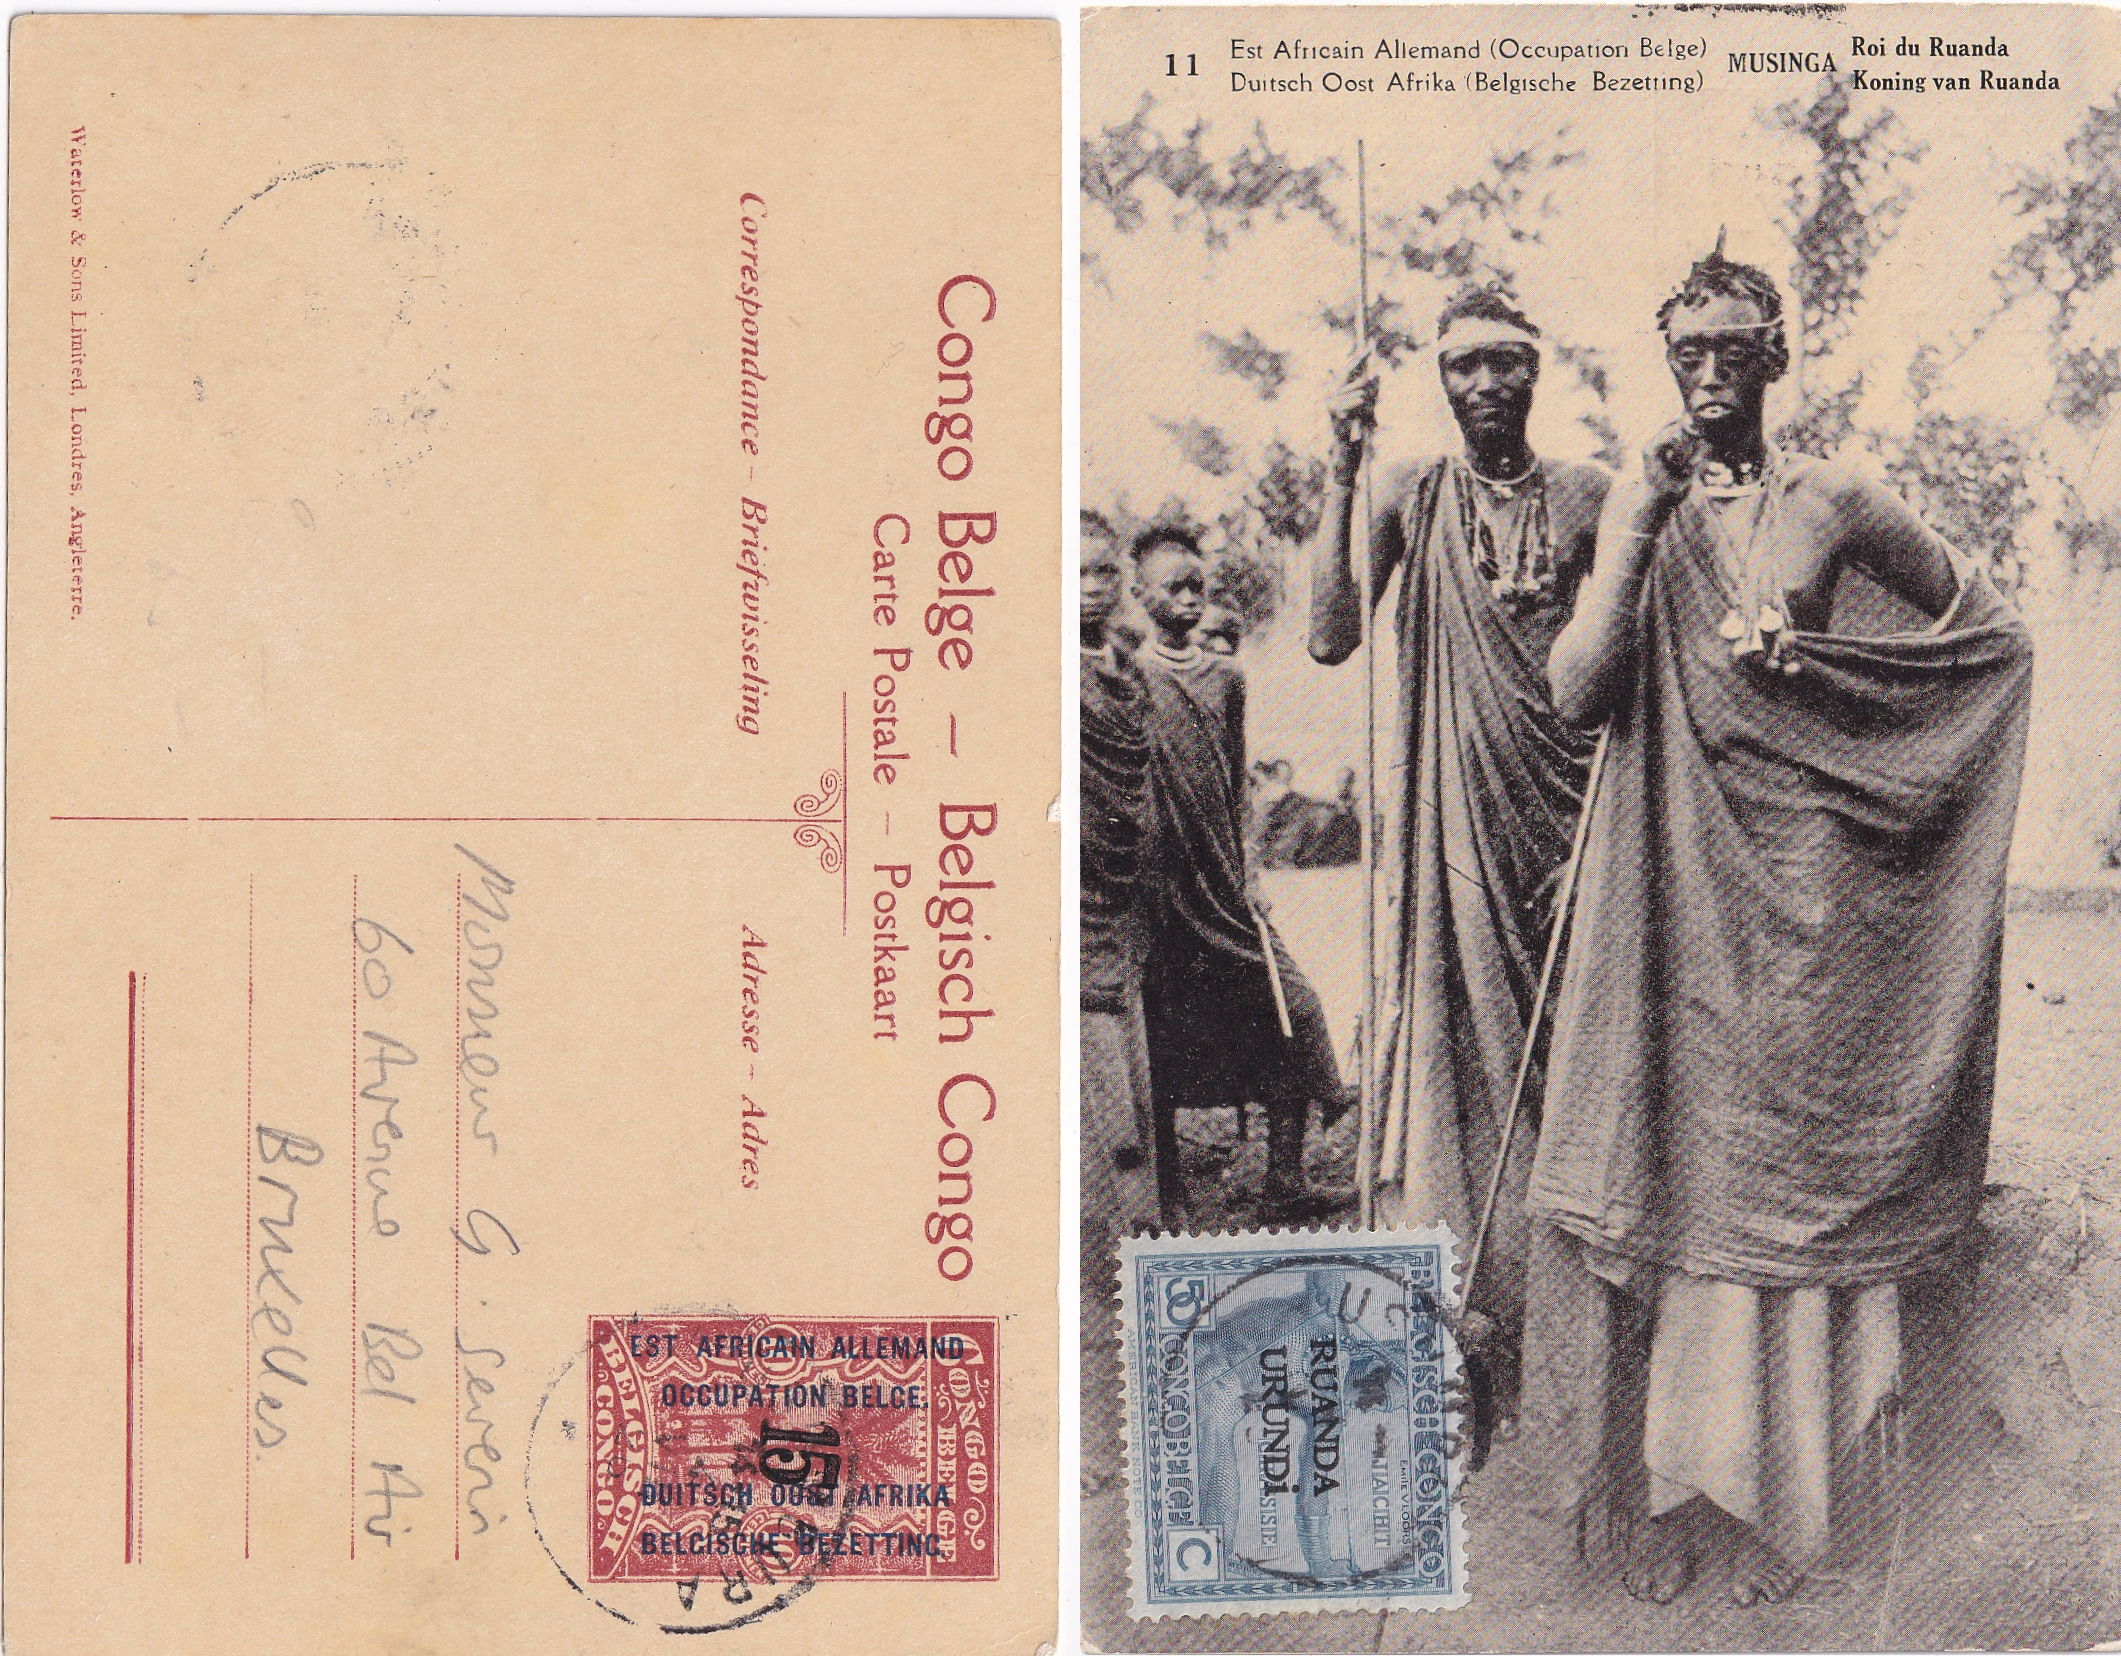 Congo Belge — Belgisch Congo
Carte Postale — Postkaart
Correspondance – Briefwisseling
Adresse – Adres
EST AFRICAIN ALLEMAND
OCCUPATION BELGE.
15
DUITSCH OOST AFRIKA
BELGISCHE BEZETTING.
CONGO
BELGE
BELGISCH
CONGO
Monsieur G. Severin
60 Avenue Bel Air
Bruxelles.
Waterlow & Sons Limited, Londres, Angleterre.
11
Est Africain Allemand (Occupation Belge)
Duitsch Oost Afrika (Belgische Bezetting)
MUSINGA
Roi du Ruanda
Koning van Ruanda
BELGISCH CONGO
RUANDA
URUNDI
CONGO BELGE
50 C